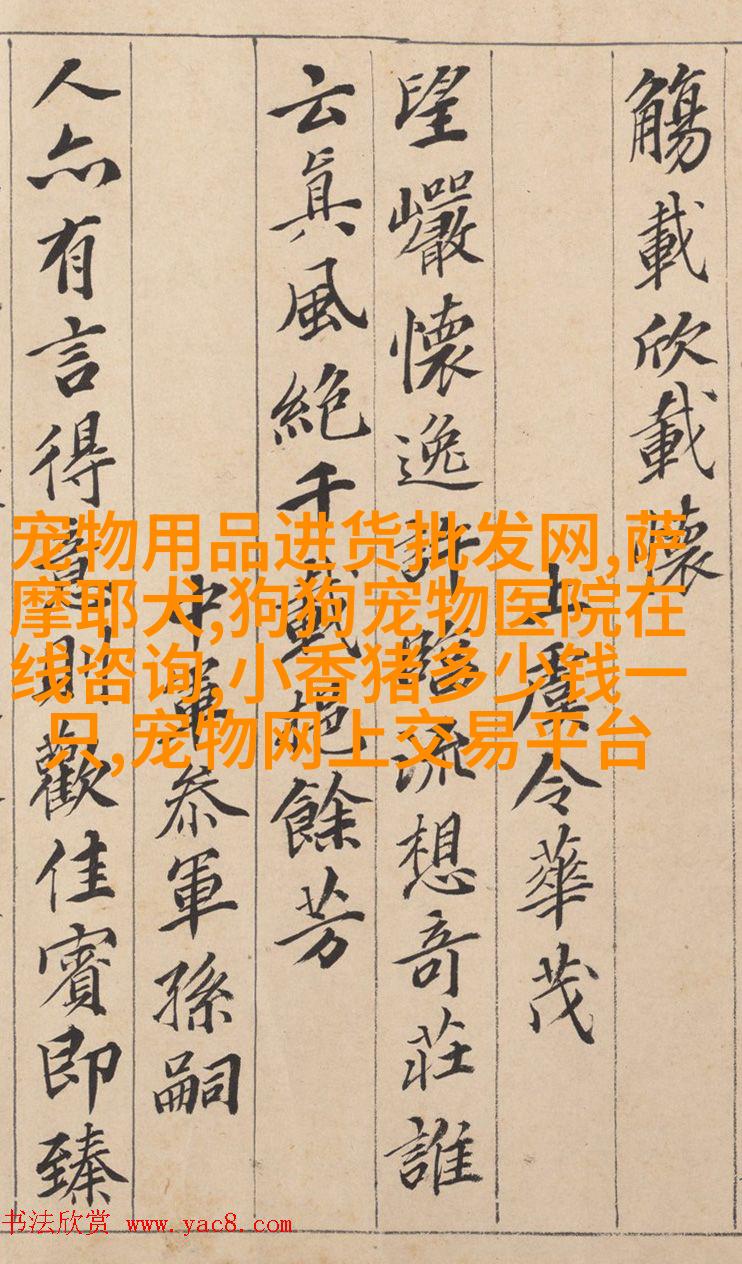 觴載欣載懷
上虞令華茂
望巖懷逸許臨流想奇莊誰
云眞風絕千載挹餘芳
中軍叅軍孫嗣
人亦有言得意則歡佳賓即臻
宠物用品进货批发网,萨
摩耶犬,狗狗宠物医院在
线咨询,小香猪多少钱一
只,宠物网上交易平台
书法欣赏 www.yac8.com